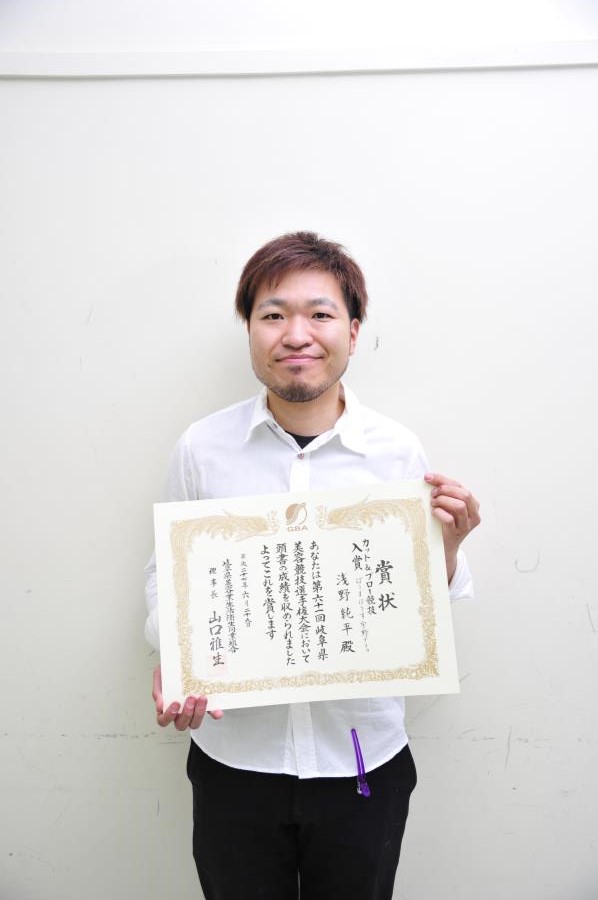 GBA
賞状
カット&ブロー競技
入賞
浅野純平殿
あなたは第六十一回岐阜県
美容競技選手権大会において
頭書の成績を収められました
よってこれを賞します
平成二十七年六月二十九日
岐阜県美容業生活衛生同業組合
理事長 山口雅生